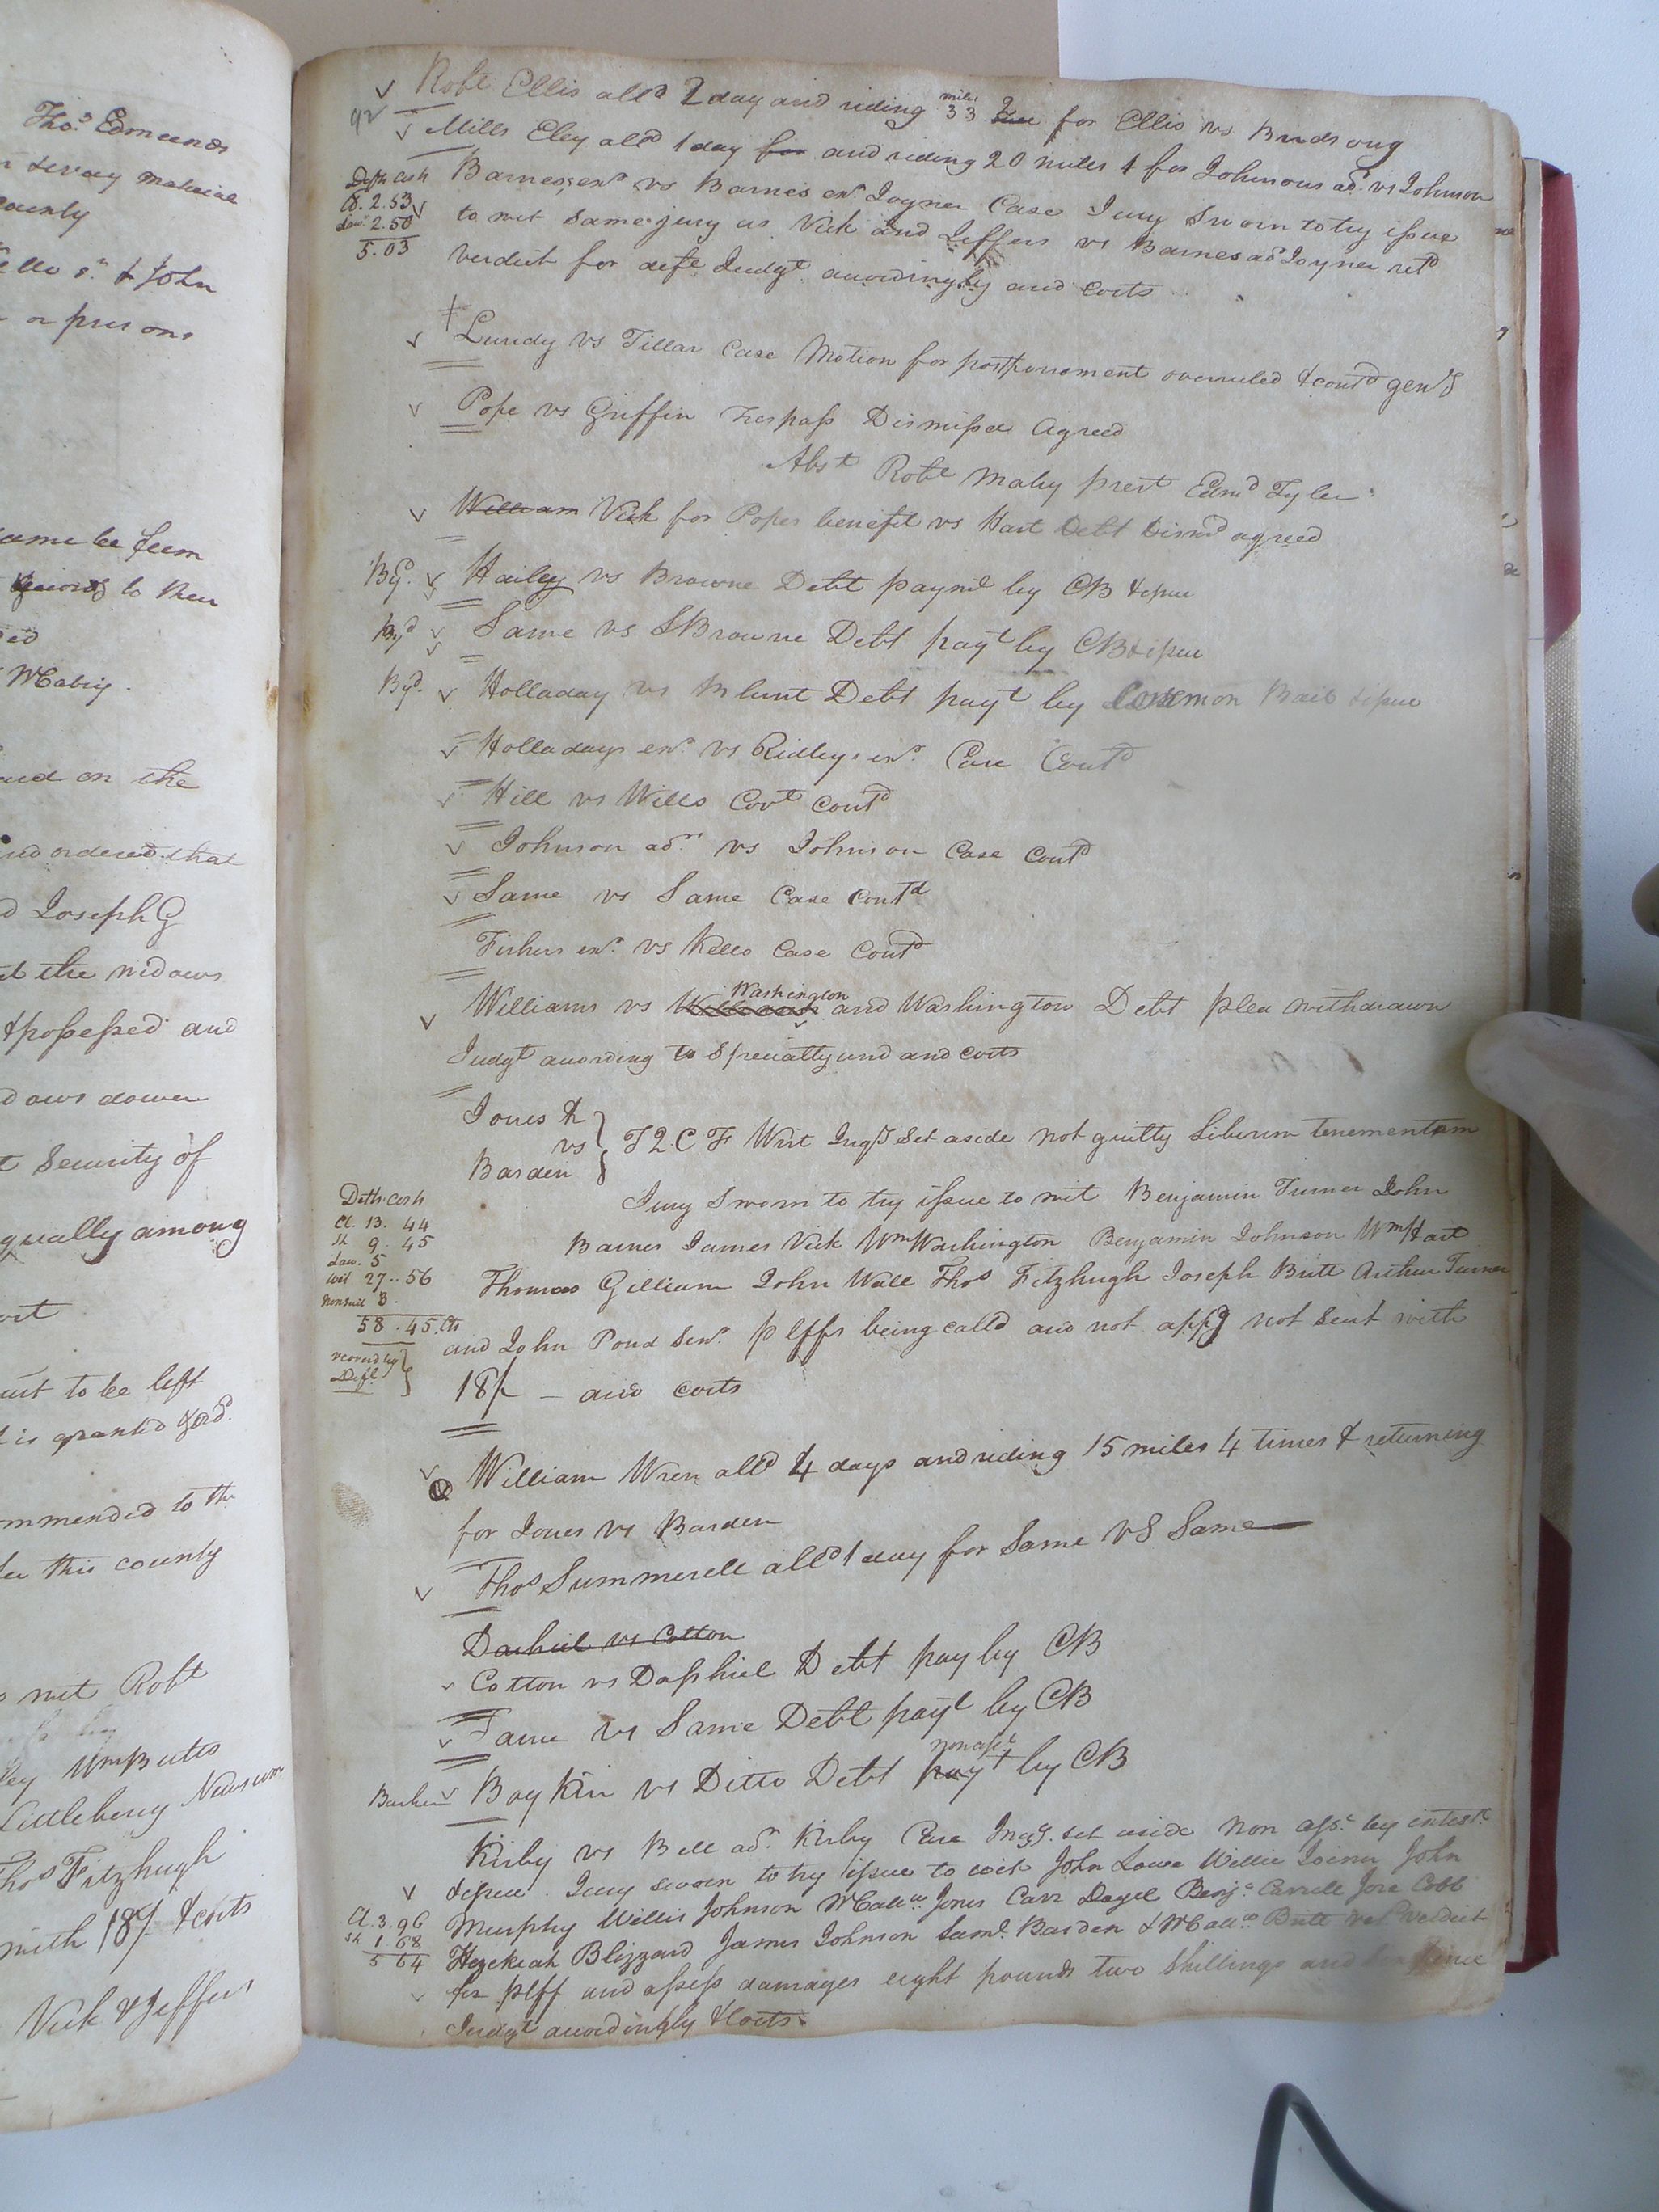 Thos Edmunds
county
& John
or persons
same be
to their
Mabry.
and on the
and ordered that
Joseph G
the widows
& possessed and
dower
Security of
equally among
to be left
is granted
recommended to the
this county
to wit Robt
Wm Butts
Littleberry Newsum
Thos Fitzhugh
with 18/ & costs
Vick & Jeffers
Robt Ellis alld 2 day and riding 33 miles for Ellis vs Birdsong
Mills Eley alld 1 day for and riding 20 miles 1 for Johnson ad. vs Johnson
Defts costs
Cl. 2.53
Law. 2.50
5.03
Barnes exr vs Barnes exr Joyner Case Jury Sworn to try issue
to wit same jury as Vick and Jeffers vs Barnes ad Joyner retd
verdict for deft Judgt accordingly and costs
Lundy vs Tillar Case Motion for postponement overruled & contd genl
Pope vs Griffin Trespass Dismissed Agreed
Abst Robt Mabry prest Edmd Tyler
William Vick for Popes benefit vs Hart Debt Dismd agreed
Hailey vs Browne Debt paymt by CB & issue
Same vs SBrowne Debt payt by CB & issue
Holladay vs Blunt Debt payt by Common Bail & issue
Holladays exr. vs Ridleys exr. Case Contd
Hill vs Wills Covt contd
Johnson adr vs Johnson Case Contd
Same vs Same Case Contd
Fishers exr. vs Kello Case Contd
Williams vs Washington and Washington Debt plea withdrawn
Judgt according to Specialty and costs
Jones &
vs
Barden
T Q C F Writ Inqy Set aside not guilty Liberum tenementam
Jury Sworn to try issue to wit Benjamin Turner John
Barnes James Vick Wm Washington Benjamin Johnson Wm Hart
Thomas Gilliam John Wall Thos Fitzhugh Joseph Britt Arthur Turner
and John Pond Senr. plffs being calld and not appg not Suit with
18/- and costs
Defts Costs
Cl. 13. 44
Sh 9. 45
Law. 5
Wit 27.. 56
Nonsuit 3.
58.45 Cts
recovd by
Deft
William Wren alld 4 days and riding 15 miles 4 times & returning
for Jones vs Barden
Thos Summerell alld 1 day for Same vs Same
Dashiel vs Cotton
Cotton vs Dashiel Debt pay by CB
Same vs Same Debt payt by CB
Boykin vs Ditto Debt payt by CB
Kirby vs Bell adr. Kirby Case Inqy. set aside Non asst by intestt
& issue. Jury sworn to try issue to wit John Lowe Willie Joiner John
Cl. 3.96
Sh 1.68
5 64
Murphy Willis Johnson Jones Carr Benja Carrell Cobb
Hezekiah Blizzard James Johnson Saml. Barden & Britt retd verdict
for plff and assess damages eight pounds two Shillings and pence
Judgt accordingly & Costs